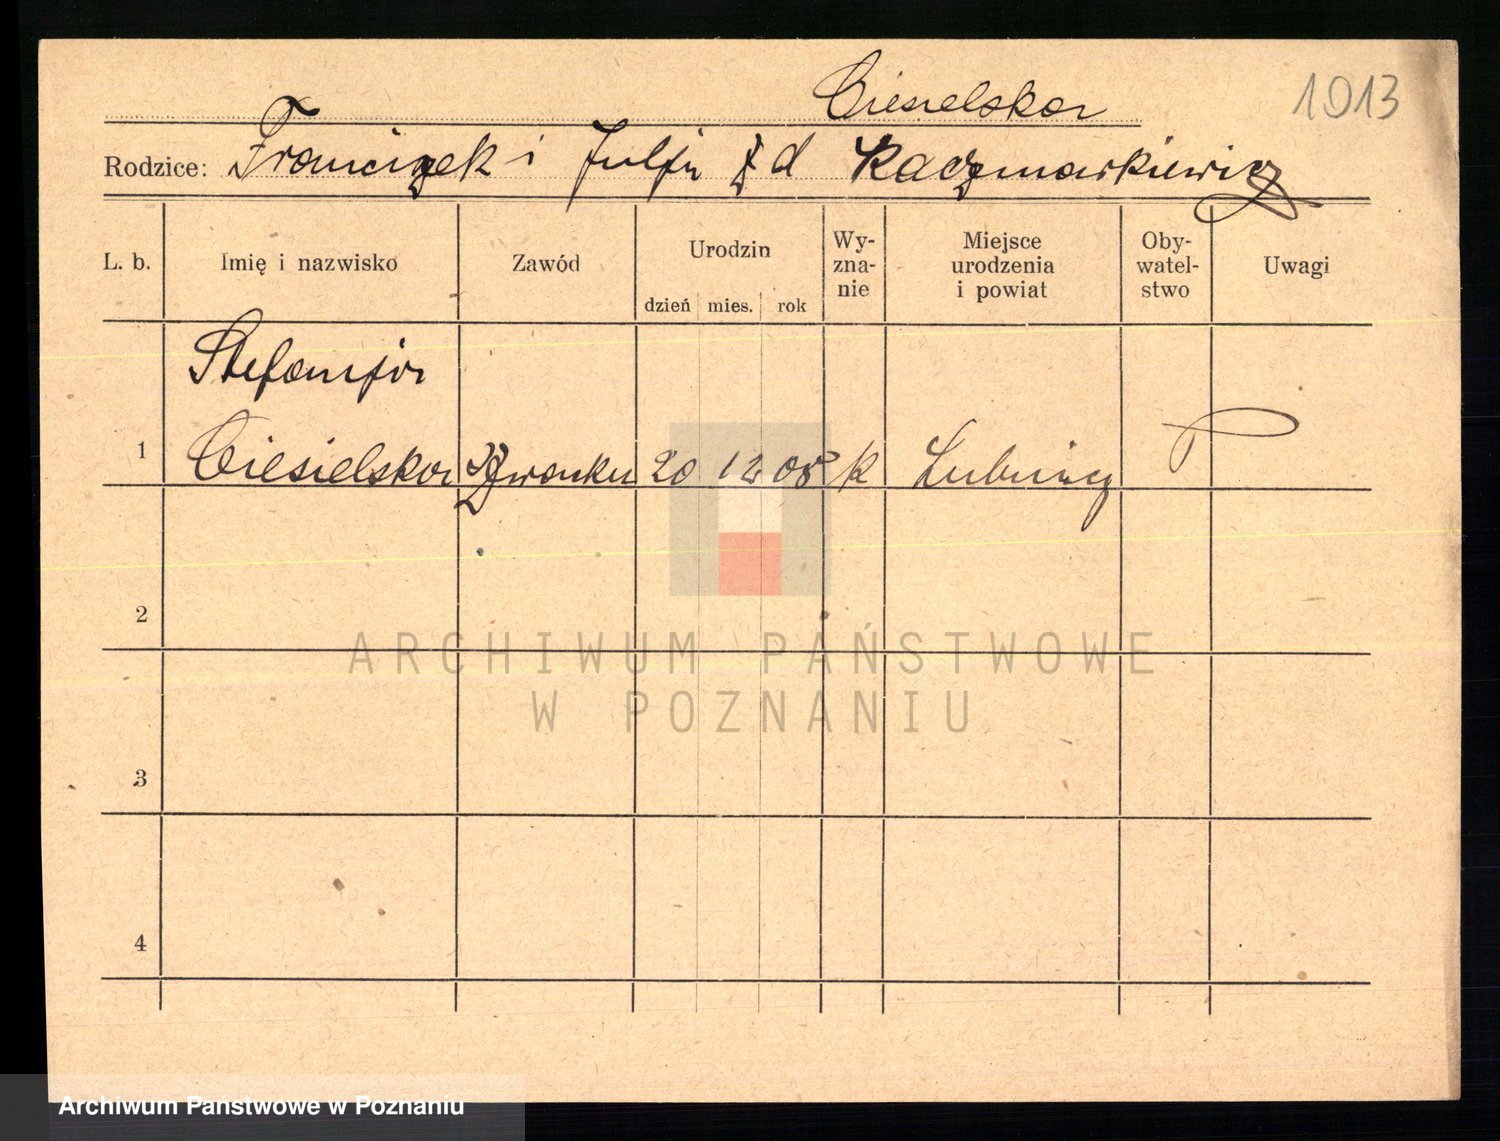 Ciesielska 1013
Rodzice: Franciszek i Julja z d Kaczmarkiewicz
L. b. Imię i nazwisko Zawód Urodzin dzień mies. rok Wy-zna-nie Miejsce urodzenia i powiat Oby-watel-stwo Uwagi
Stefanja
1 Ciesielska 20 12 05 k P
2
ARCHIWUM PAŃSTWOWE
W POZNANIU
3
4
Archiwum Państwowe w Poznaniu